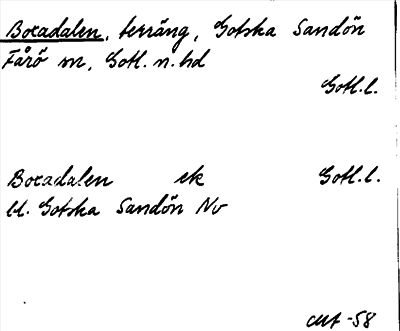 Boradalen, terräng, Gotska Sandön
Fårö sn, Gotl. n. hd
Gotl. l.
Boradalen ek Gotl. l.
bl. Gotska Sandön Nv
-58